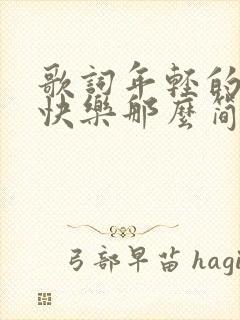 歌詞年轻的
快樂那麼简
弓部早苗 hagi